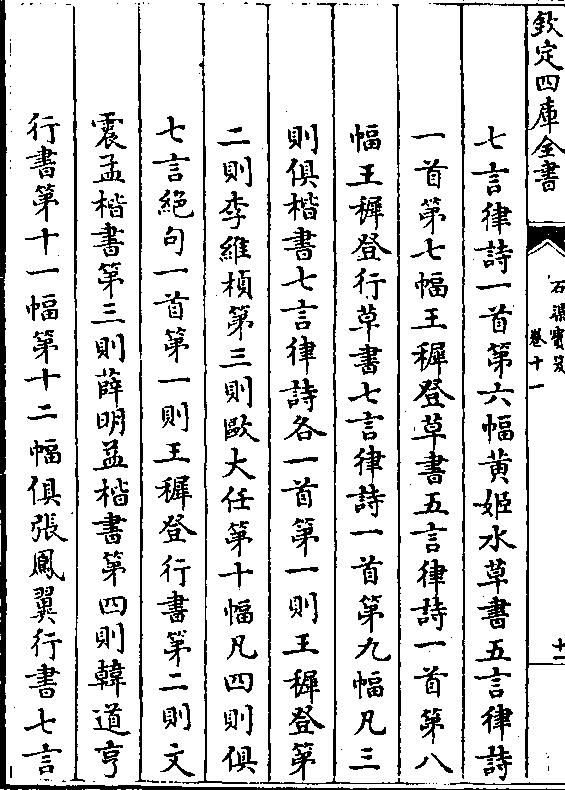 欽定四庫全書
石渠寶笈
卷十一
十一
七言律詩一首第六幅黄姬水草書五言律詩
一首第七幅王穉登草書五言律詩一首第八
幅王穉登行草書七言律詩一首第九幅凡三
則俱楷書七言律詩各一首第一則王穉登第
二則李維楨第三則歐大任第十幅凡四則俱
七言絕句一首第一則王穉登行書第二則文
震孟楷書第三則薛明益楷書第四則韓道亨
行書第十一幅第十二幅俱張鳳翼行書七言